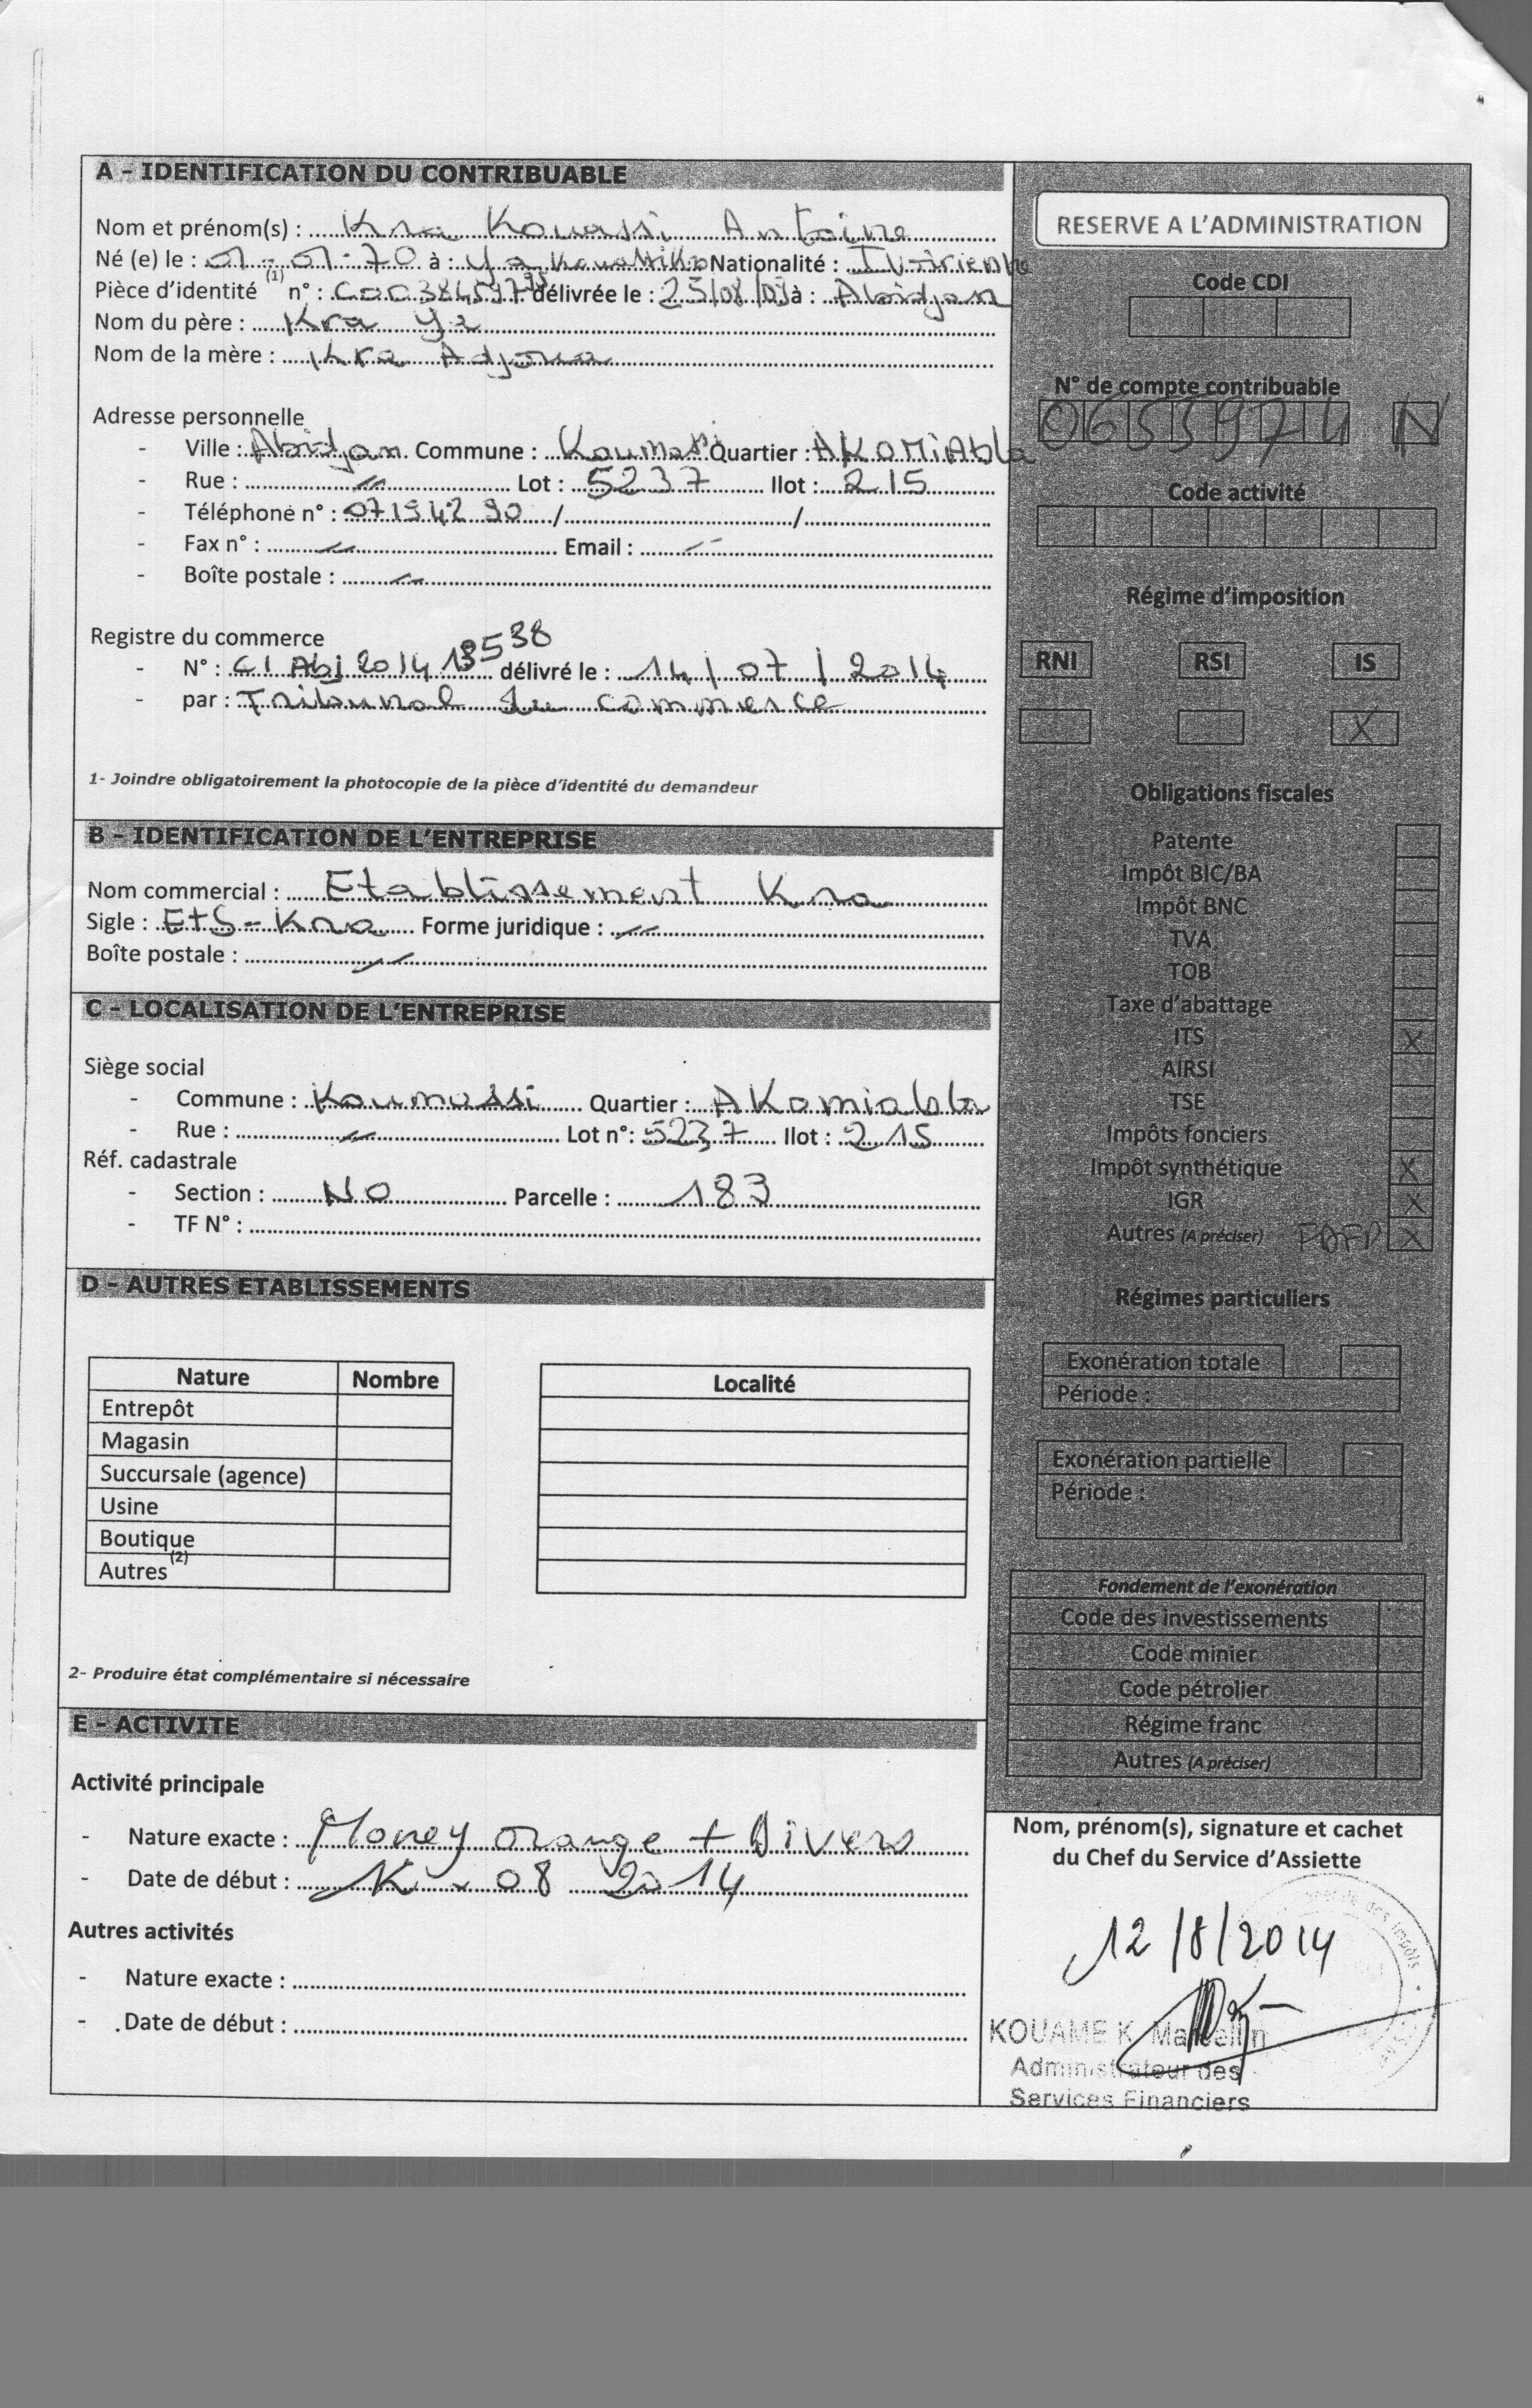 A - IDENTIFICATION DU CONTRIBUABLE
Nom et prénom(s) : Kra Kouassi Antoine
Né (e) le : 01-01-70 à : Ya Kouassikro Nationalité : Ivoirienne
Pièce d'identité (1) n° : délivrée le : 25/08/09 à : Abidjan
Nom du père : Kra Ya
Nom de la mère : Kra Adjoua
Adresse personnelle
- Ville : Abidjan Commune : Koumassi Quartier : AKOMiAbla
- Rue : // Lot : 5237 Ilot : 215
- Téléphone n° : 07194290 / /
- Fax n° : // Email : //
- Boîte postale : //
Registre du commerce
- N° : CI Abj 2014 délivré le : 14/07/2014
- par : Tribunal du commerce
1- Joindre obligatoirement la photocopie de la pièce d'identité du demandeur
B - IDENTIFICATION DE L'ENTREPRISE
Nom commercial : Etablissement Kra
Sigle : EtS-Kra Forme juridique : //
Boîte postale : //
C - LOCALISATION DE L'ENTREPRISE
Siège social
- Commune : Koumassi Quartier : AKomiabla
- Rue : // Lot n° : 5237 Ilot : 215
Réf. cadastrale
- Section : NO Parcelle : 183
- TF N° :
D - AUTRES ETABLISSEMENTS
Nature Nombre Localité
Entrepôt
Magasin
Succursale (agence)
Usine
Boutique
Autres (2)
2- Produire état complémentaire si nécessaire
E - ACTIVITE
Activité principale
- Nature exacte : Money orange + Divers
- Date de début : 08 2014
Autres activités
- Nature exacte :
- Date de début :
RESERVE A L'ADMINISTRATION
Code CDI
N° de compte contribuable
N
Code activité
Régime d'imposition
RNI RSI IS
X
Obligations fiscales
Patente
Impôt BIC/BA
Impôt BNC
TVA
TOB
Taxe d'abattage
ITS X
AIRSI
TSE
Impôts fonciers
Impôt synthétique X
IGR X
Autres (A préciser) FDFP X
Régimes particuliers
Exonération totale
Période :
Exonération partielle
Période :
Fondement de l'exonération
Code des investissements
Code minier
Code pétrolier
Régime franc
Autres (A préciser)
Nom, prénom(s), signature et cachet
du Chef du Service d'Assiette
12/8/2014
KOUAME K. Marcellin
Administrateur des
Services Financiers